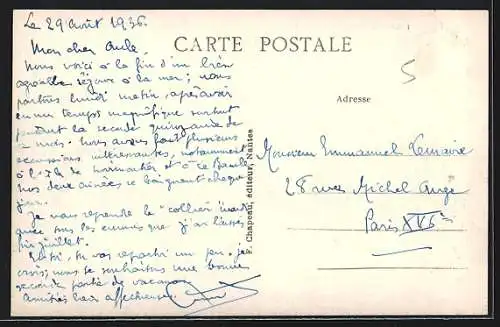 Le 29 août 1936.
Mon cher oncle,
Nous voici à la fin d'un très
agréable séjour à la mer ; nous
partons lundi matin, après avoir
eu un temps magnifique surtout
pendant la seconde quinzaine de
ce mois. Nous avons fait plusieurs
excursions intéressantes, notamment
à l'Ile de Noirmoutier et à La Baule
Nos deux aînées se baignent chaque
jour.
Je vous reprendre le "collier"
sous les ennuis que j'ai laissés
fin juillet.
Et toi, tu vas repartir un peu, je
crois ; nous te souhaitons une bonne
seconde partie de vacances
Amitiés bien affectueuses.
CARTE POSTALE
5
Adresse
Monsieur Emmanuel Lemaire
28 rue Michel Ange
Paris XVIe
F. Chapeau, éditeur, Nantes